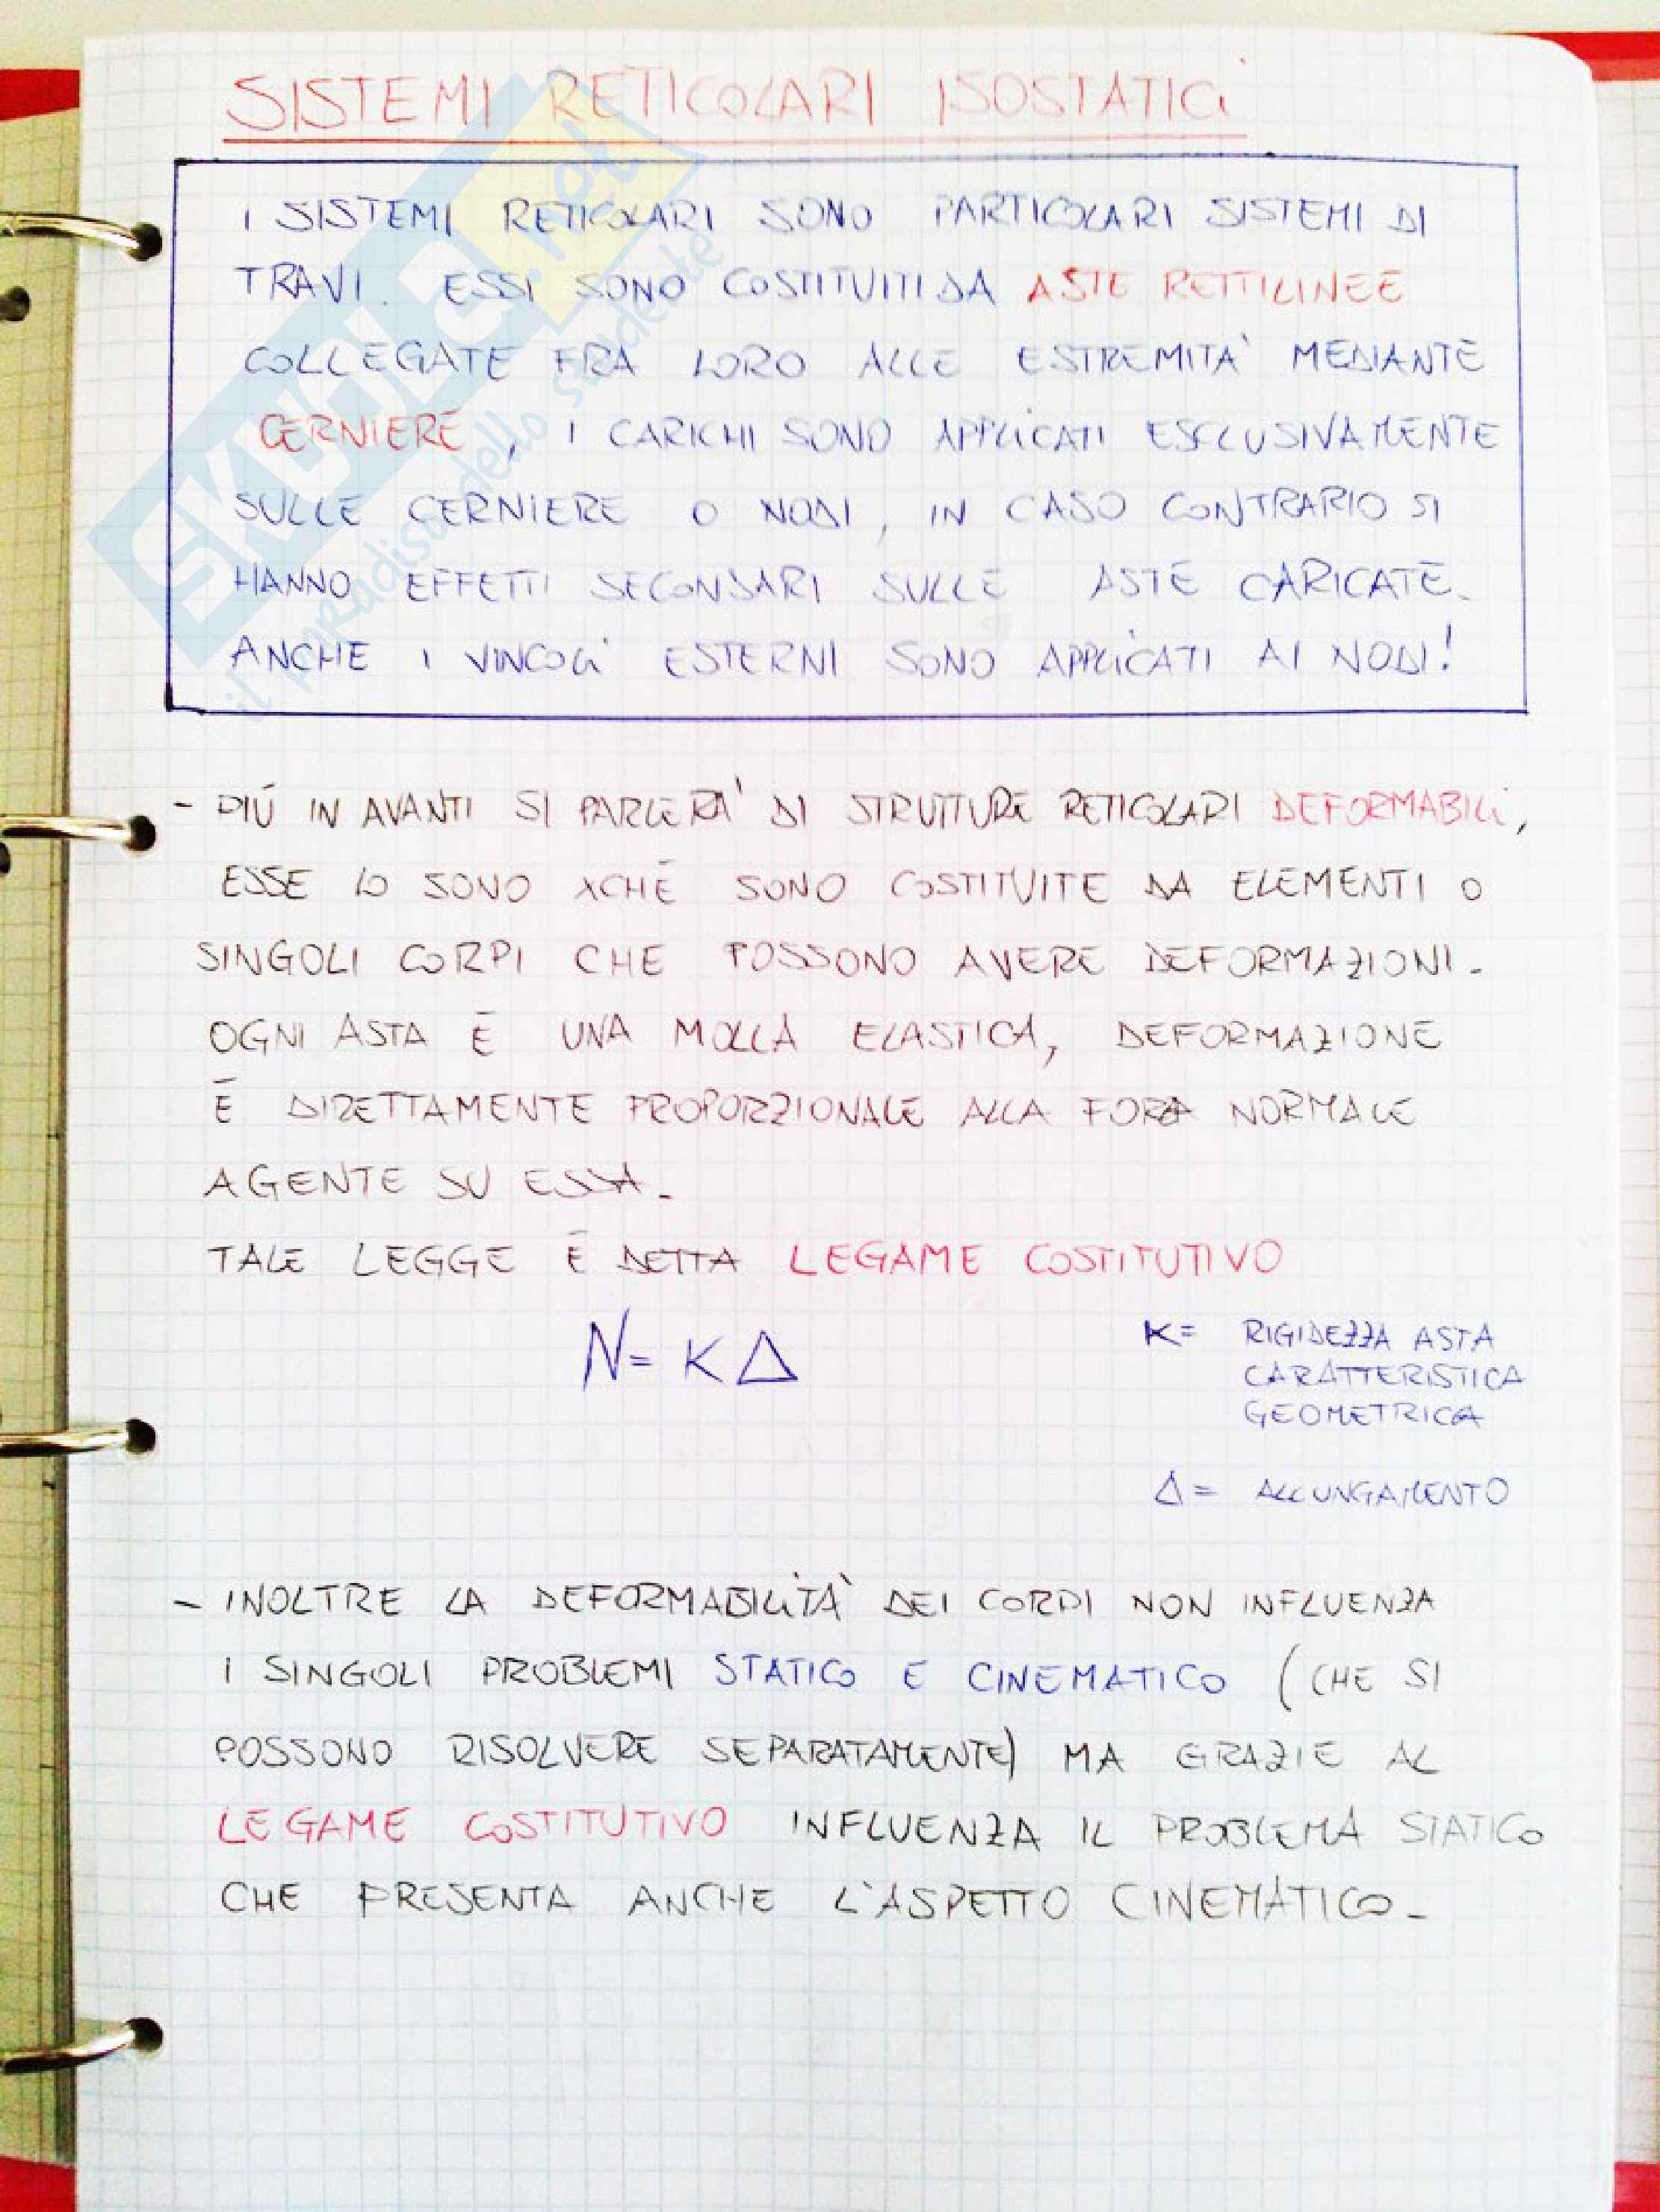 SISTEMI RETICOLARI ISOSTATICI
I SISTEMI RETICOLARI SONO PARTICOLARI SISTEMI DI
TRAVI. ESSI SONO COSTITUITI DA ASTE RETTILINEE
COLLEGATE FRA LORO ALLE ESTREMITA' MEDIANTE
CERNIERE, I CARICHI SONO APPLICATI ESCLUSIVAMENTE
SULLE CERNIERE O NODI, IN CASO CONTRARIO SI
HANNO EFFETTI SECONDARI SULLE ASTE CARICATE.
ANCHE I VINCOLI ESTERNI SONO APPLICATI AI NODI!
- PIÚ IN AVANTI SI PARLERA' DI STRUTTURE RETICOLARI DEFORMABILI,
ESSE LO SONO XCHÉ SONO COSTITUITE DA ELEMENTI O
SINGOLI CORPI CHE POSSONO AVERE DEFORMAZIONI.
OGNI ASTA É UNA MOLLA ELASTICA, DEFORMAZIONE
É DIRETTAMENTE PROPORZIONALE ALLA FORZA NORMALE
AGENTE SU ESSA.
TALE LEGGE É DETTA LEGAME COSTITUTIVO
N = K Δ
K = RIGIDEZZA ASTA
CARATTERISTICA
GEOMETRICA
Δ = ALLUNGAMENTO
- INOLTRE LA DEFORMABILITÀ DEI CORPI NON INFLUENZA
I SINGOLI PROBLEMI STATICO E CINEMATICO (CHE SI
POSSONO RISOLVERE SEPARATAMENTE) MA GRAZIE AL
LEGAME COSTITUTIVO INFLUENZA IL PROBLEMA STATICO
CHE PRESENTA ANCHE L'ASPETTO CINEMATICO.
SKUOLA.net
il paradiso dello studente